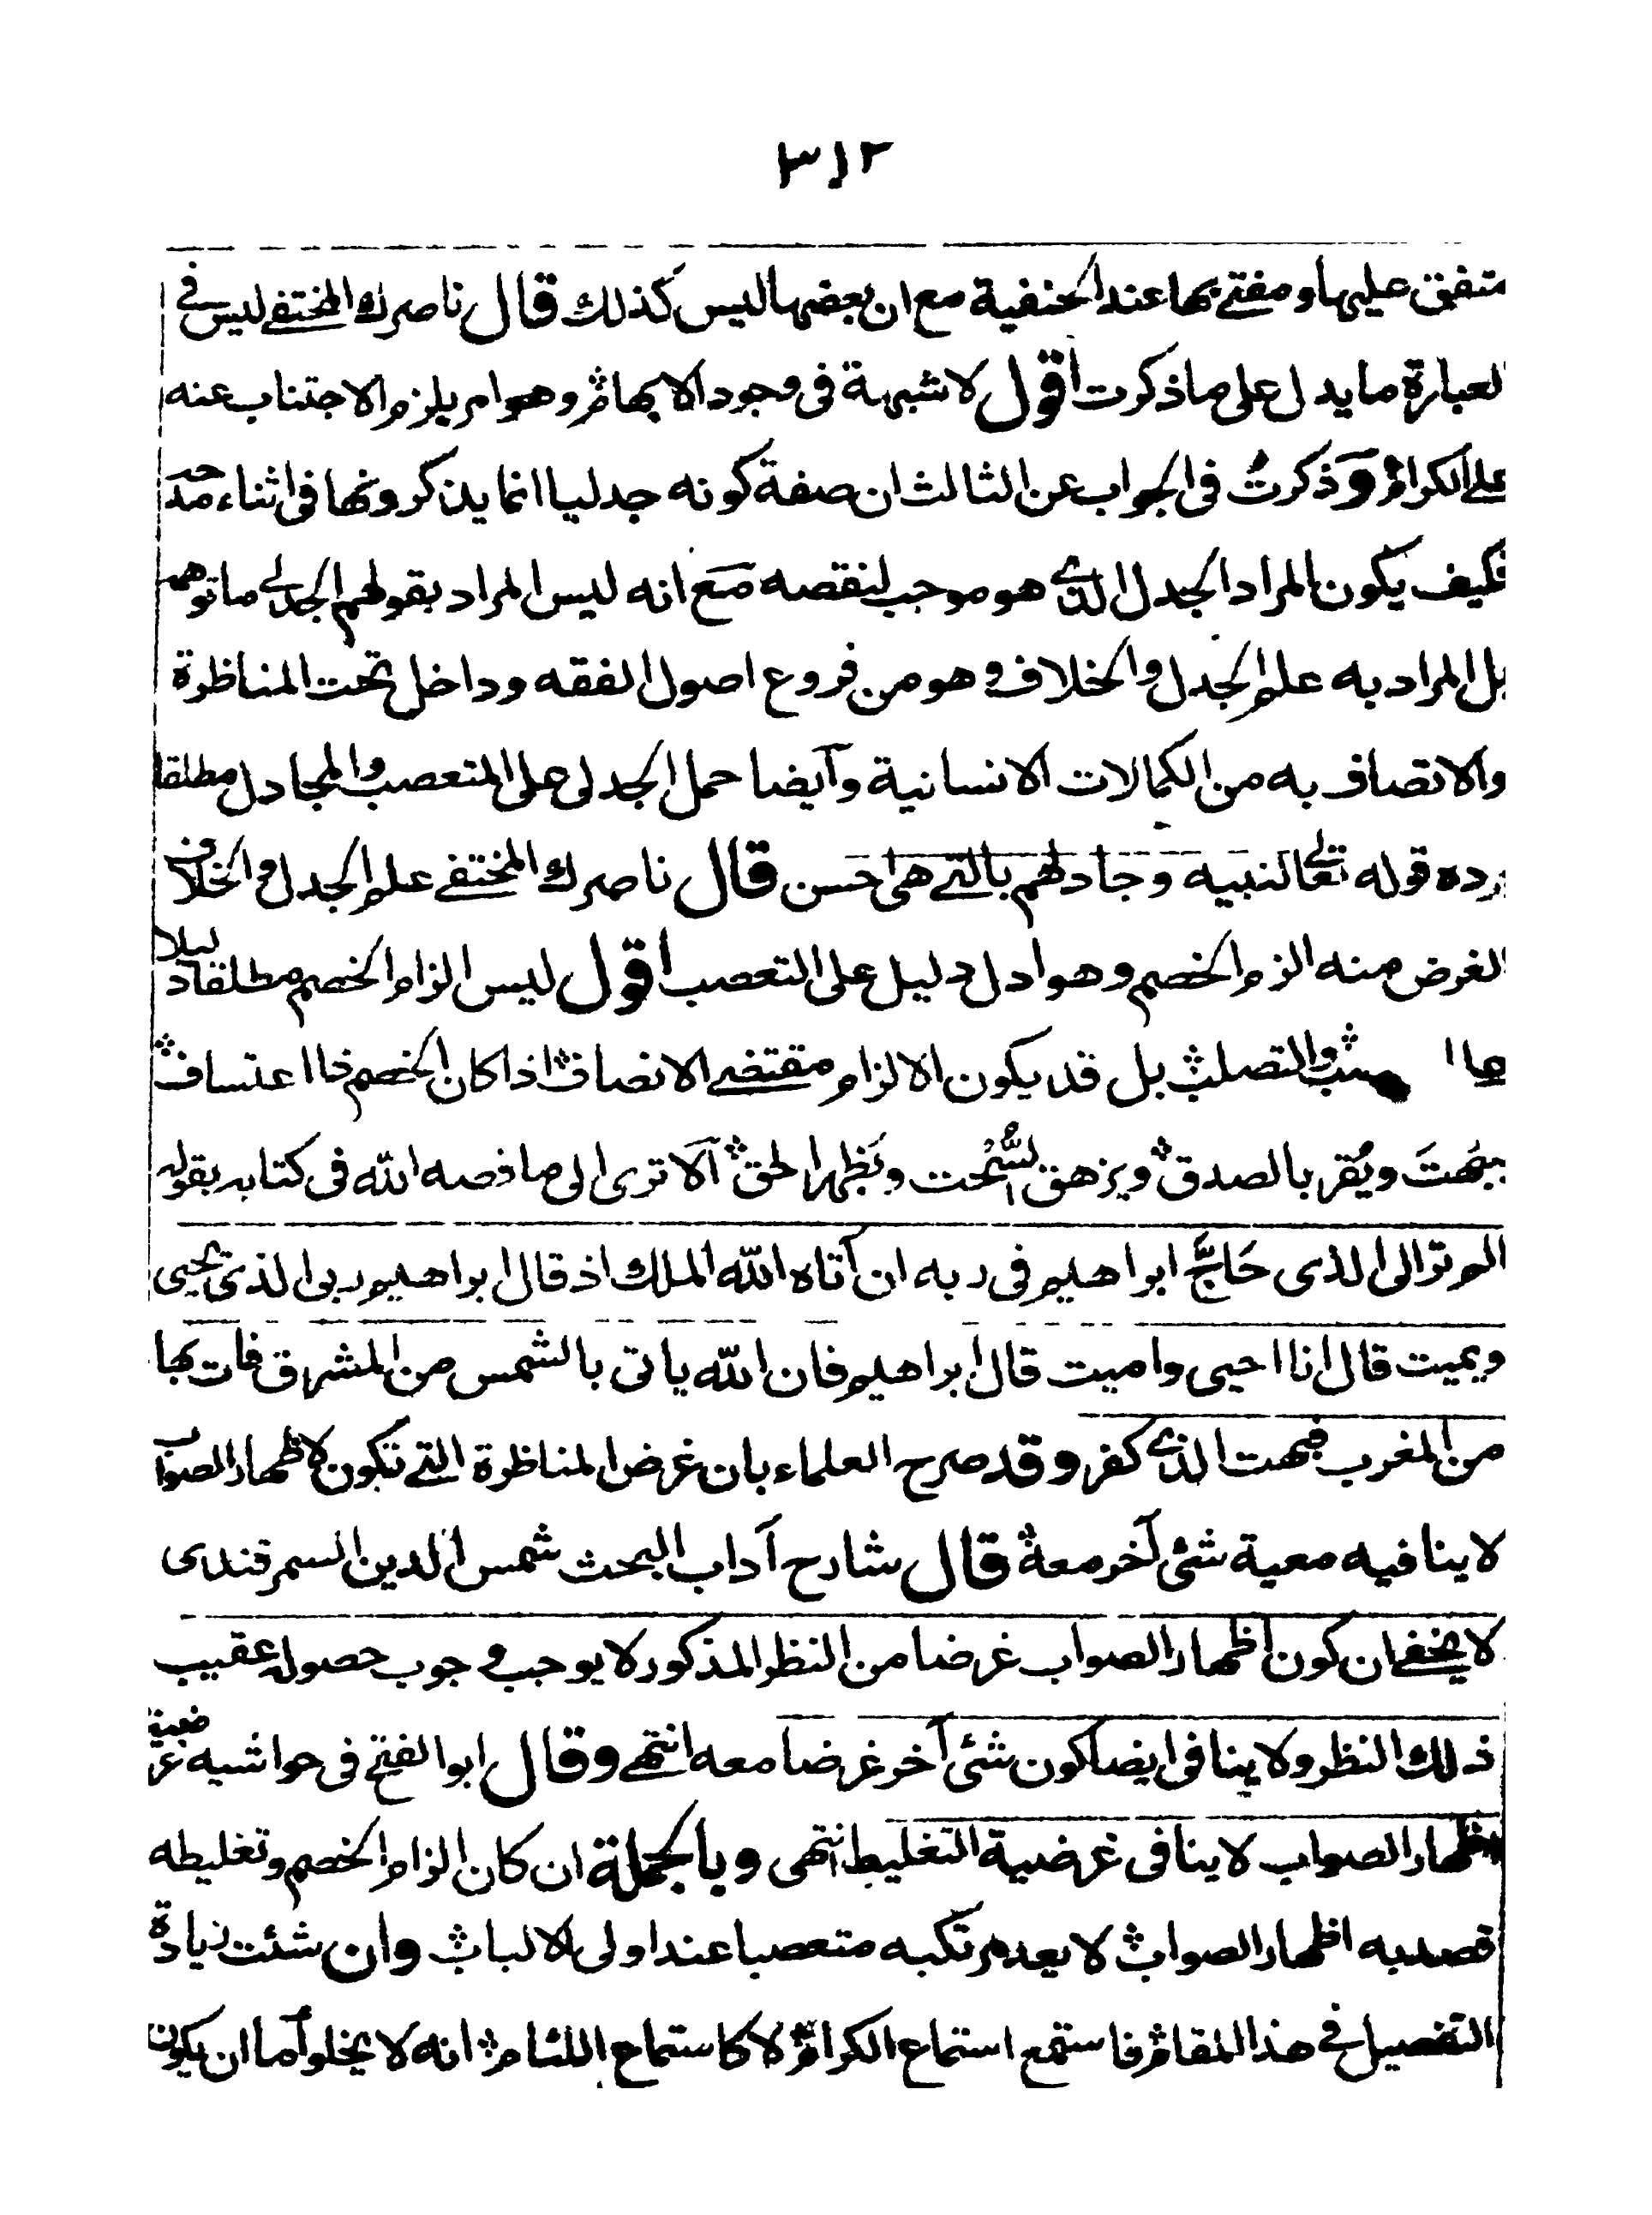 ٣١٢
متفق عليها ومفتے بها عند الحنفية مع ان بعضها ليس كذلك قال ناصرك المختفے ليس فے
العبارة ما يدل على ما ذكرت اقول لا شبهة فى وجود الابهام وهو امر يلزم الاجتناب عنه
على الكرام وذكرتُ فى الجواب عن الثالث ان صفة كونه جدليا انما يذكرونها فى اثناء مدحه
فكيف يكون المراد الجدل الذے هو موجب لنقصه مع انه ليس المراد بقولهم الجدلے ما توهمه
بل المراد به علم الجدل والخلاف وهو من فروع اصول الفقه وداخل تحت المناظرة
والاتصاف به من الكمالات الانسانية وآيضا حمل الجدلى على المتعصب والمجادل مطلقا
يرده قوله تعالے لنبيه وجادلهم بالتے هى احسن قال ناصرك المختفے علم الجدل والخلاف
الغرض منه الزام الخصم وهو ادل دليل على التعصب اقول ليس الزام الخصم مطلقا دليلا
والتصلب بل قد يكون الالزام مقتضے الانصاف اذا كان الخصم ذا اعتساف
يبهتَ ويُقر بالصدق ويزهق السُّحت ويَظهر الحق آلا ترى الى ما قصه الله فى كتابه بقوله
الم تر الى الذى حَاجَّ ابراهيم فى ربه ان آتاه الله الملك اذ قال ابراهيم ربى الذى يحيى
ويميت قال انا احيى واميت قال ابراهيم فان الله ياتى بالشمس من المشرق فات بها
من المغرب فبهت الذے كفر وقد صرح العلماء بان غرض المناظرة التے تكون لاظهار الصواب
لا ينافيه معية شئ آخر معه قال شارح آداب البحث شمس الدين السمرقندى
لا يخفے ان كون اظهار الصواب غرضا من النظر المذكور لا يوجب وجوب حصوله عقيب
ذلك النظر ولا ينافى ايضا كون شئ آخر غرضا معه انتهے وقال ابو الفتح فى حواشيه غرضية
اظهار الصواب لا ينافى غرضية التغليط انتهى وبالجملة ان كان الزام الخصم وتغليطه
قصد به اظهار الصواب لا يعد مرتكبه متعصبا عند اولى الالباب وان شئت زيادة
التفصيل فے هذا المقام فاستمع استماع الكرام لا كاستماع اللئام انه لا يخلو آما ان يكون